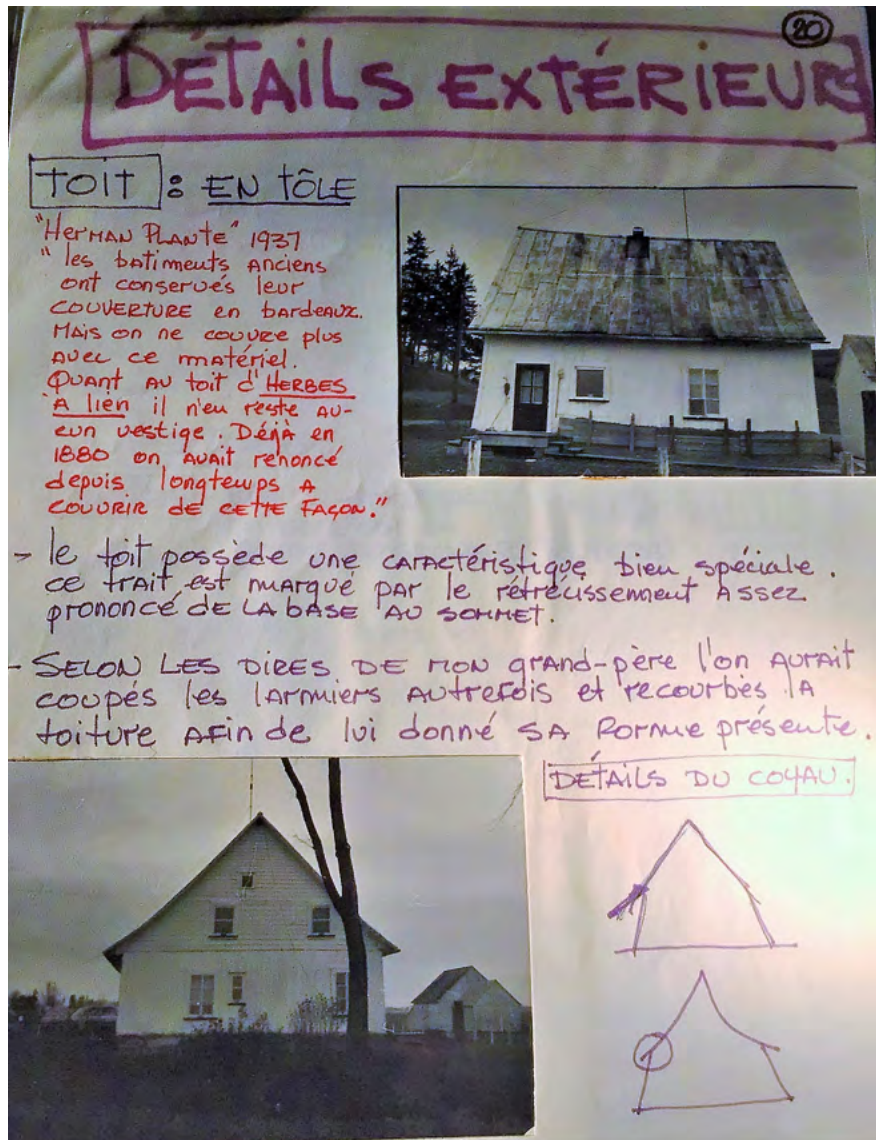 20
DÉTAILS EXTÉRIEURS
TOIT : EN TÔLE
"HERMAN PLANTE" 1937
" les batiments anciens
ont conservés leur
COUVERTURE en bardeaux.
MAIS on ne couvre plus
AVEC ce matériel.
QUANT AU toit d'HERBES
À lien il n'en reste AU-
cun vestige. Déjà en
1880 on AVAIT renoncé
depuis longtemps A
COUVRIR de CETTE FAÇON."
- le toit possède une CARACTÉRISTIQUE bien spéciale.
ce trait est MARQUÉ PAR le rétrécissement Assez
prononcé DE LA BASE AU SOMMET.
- SELON LES DIRES DE MON grand-père l'on AURAIT
coupés les larmiers AUTREFOIS et recourbés lA
toiture AFin de lui donné SA forme présente.
DÉTAILS DU COYAU.